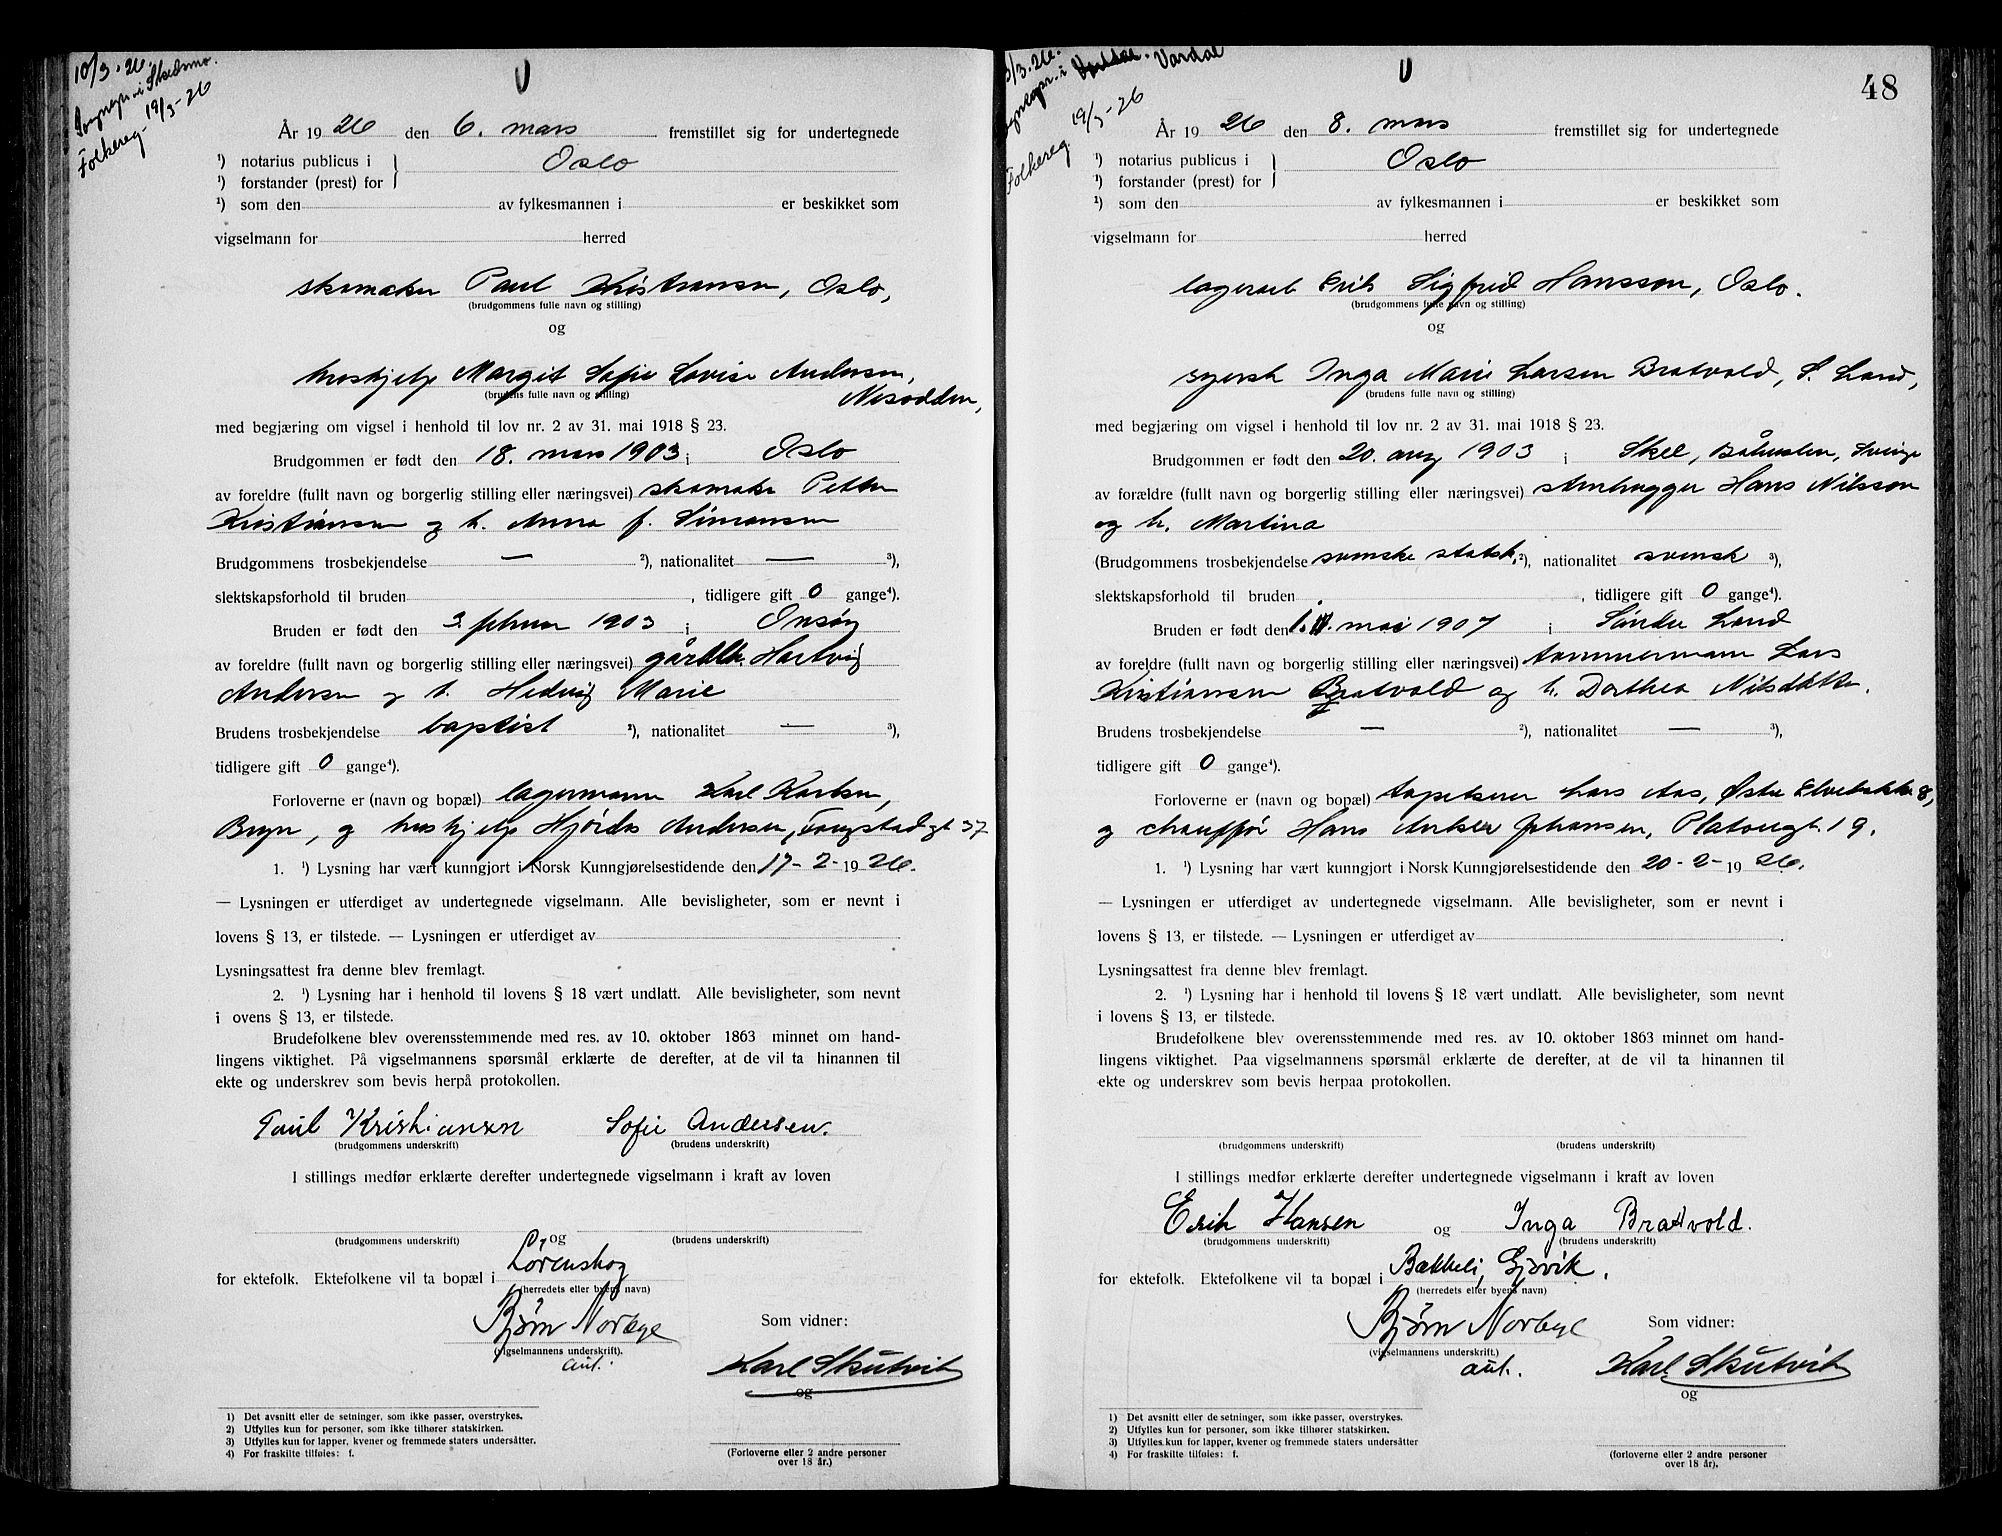 10/3.26.
Sognepr. i Skedsmo.
Folkereg. 19/3-26
År 1926 den 6. mars fremstillet sig for undertegnede
¹) notarius publicus i } Oslo
¹) forstander (prest) for
¹) som den av fylkesmannen i er beskikket som
vigselmann for herred
skomaker Paul Kristiansen, Oslo,
(brudgommens fulle navn og stilling)
og
hushjelp Margit Sofie Lovise Andersen,
(brudens fulle navn og stilling) Nesodden,
med begjæring om vigsel i henhold til lov nr. 2 av 31. mai 1918 § 23.
Brudgommen er født den 18. mars 1903 i Oslo
av foreldre (fullt navn og borgerlig stilling eller næringsvei) skomaker Petter
Kristiansen og h. Anna f. Simensen
Brudgommens trosbekjendelse — ²), nationalitet — ³),
slektskapsforhold til bruden , tidligere gift 0 gange⁴).
Bruden er født den 3. februar 1903 i Onsøy
av foreldre (fullt navn og borgerlig stilling eller næringsvei) Hartvig
Andersen og h. Hedvig Marie
Brudens trosbekjendelse baptist ²), nationalitet — ³),
tidligere gift 0 gange⁴).
Forloverne er (navn og bopæl) lagermann Karl Karlsen,
Bryn, og hushjelp Hjørdis Andersen, 37
1. ¹) Lysning har vært kunngjort i Norsk Kunngjørelsestidende den 17-2-1926.
— Lysningen er utferdiget av undertegnede vigselmann. Alle bevisligheter, som er nevnt i
lovens § 13, er tilstede. — Lysningen er utferdiget av
Lysningsattest fra denne blev fremlagt.
2. ¹) Lysning har i henhold til lovens § 18 vært undlatt. Alle bevisligheter, som nevnt
i ovens § 13, er tilstede.
Brudefolkene blev overensstemmende med res. av 10. oktober 1863 minnet om hand-
lingens viktighet. På vigselmannens spørsmål erklærte de derefter, at de vil ta hinannen til
ekte og underskrev som bevis herpå protokollen.
Paul Kristiansen Sofie Andersen.
(brudgommens underskrift) (brudens underskrift)
I stillings medfør erklærte derefter undertegnede vigselmann i kraft av loven
og
(brudgommens underskrift) (brudens underskrift)
for ektefolk. Ektefolkene vil ta bopæl i Lørenskog
(herredets eller byens navn)
Bjørn Norbye Som vidner:
(vigselmannens underskrift).
aut. Karl Skutvik
og
1) Det avsnitt eller de setninger, som ikke passer, overstrykes.
2) Utfylles kun for personer, som ikke tilhører statskirken.
3) Utfylles kun for lapper, kvener og fremmede staters undersåtter.
4) For fraskilte tilføies: f.
(Forloverne eller 2 andre personer
over 18 år.)
48
/3.26.
Sognepr. i Vardal
Folkereg. 19/3-26
År 1926 den 8. mars fremstillet sig for undertegnede
¹) notarius publicus i } Oslo
¹) forstander (prest) for
¹) som den av fylkesmannen i er beskikket som
vigselmann for herred
lagerarb Erik Sigfrid Hansson, Oslo.
(brudgommens fulle navn og stilling)
og
syersk Inga Marie Larsen Bratvold, S. Land,
(brudens fulle navn og stilling)
med begjæring om vigsel i henhold til lov nr. 2 av 31. mai 1918 § 23.
Brudgommen er født den 20. aug 1903 i Skee, Båhuslen, Sverige
av forældre (fullt navn og borgerlig stilling eller næringsvei) stenhugger Hans Nilsson
og h. Martina
(Brudgommens trosbekjendelse svenske statsk. ²), nationalitet svensk ³),
slektskapsforhold til bruden , tidligere gift 0 gange⁴).
Bruden er født den 1. mai 1907 i Søndre Land
av foreldre (fullt navn og borgerlig stilling eller næringsvei) tømmermann Lars
Kristiansen Bratvold og h. Dorthea Nilsdatter.
Brudens trosbekjendelse — ²), nationalitet — ³),
tidligere gift 0 gange⁴).
Forloverne er (navn og bopæl) tapetserer Lars Aas, Østre Elvebakke 8,
og chauffør Hans Anker Johansen, Platousgt. 19.
1. ¹) Lysning har vært kunngjort i Norsk Kunngjørelsestidende den 20-2-1926.
— Lysningen er utferdiget av undertegnede vigselmann. Alle bevisligheter, som er nevnt i
lovens § 13, er tilstede. — Lysningen er utferdiget av
Lysningsattest fra denne blev fremlagt.
2. ¹) Lysning har i henhold til lovens § 18 vært undlatt. Alle bevisligheter, som nevnt
i lovens § 13, er tilstede.
Brudefolkene blev overensstemmende med res. av 10. oktober 1863 minnet om hand-
lingens viktighet. Paa vigselmannens spørsmål erklærte de derefter, at de vil ta hinannen til
ekte og underskrev som bevis herpaa protokollen.
(brudgommens underskrift) (brudens underskrift)
I stillings medfør erklærte derefter undertegnede vigselmann i kraft av loven
Erik Hansen og Inga Bratvold.
(brudgommens underskrift) (brudens underskrift)
for ektefolk. Ektefolkene vil ta bopæl i Bækkeli, Gjøvik.
(herredets eller byens navn)
Bjørn Norbye Som vidner:
(vigselmannens underskrift.)
aut. Karl Skutvik
og
1) Det avsnitt eller de setninger, som ikke passer, overstrykes.
2) Utfylles kun for personer, som ikke tilhører statskirken.
3) Utfylles kun for lapper, kvener og fremmede staters undersåtter
4) For fraskilte tilføies: f.
(forloverne eller 2 andre personer
over 18 år).